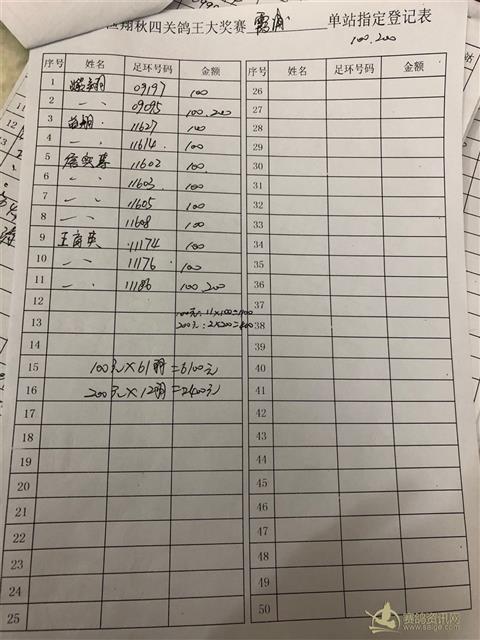 翔秋四关鸽王大奖赛 单站指定登记表
100.200
序号 姓名 足环号码 金额 序号 姓名 足环号码 金额
1 09197 100 26
2 〃 09095 100.200 27
3 11627 100 28
4 〃 11614 100 29
5 11602 100 30
6 〃 11603 100 31
7 〃 11605 100 32
8 〃 11608 100 33
9 11174 100 34
10 〃 11176 100 35
11 〃 11186 100.200 36
12 37
100元:11×100=1100
13 200元:2×200=400 38
39
15 100元×61羽=6100元 40
16 200元×12羽=2400元 41
17 42
18 43
19 44
20 45
21 46
22 47
23 48
24 49
25 50
赛鸽资讯网
www.saige.com